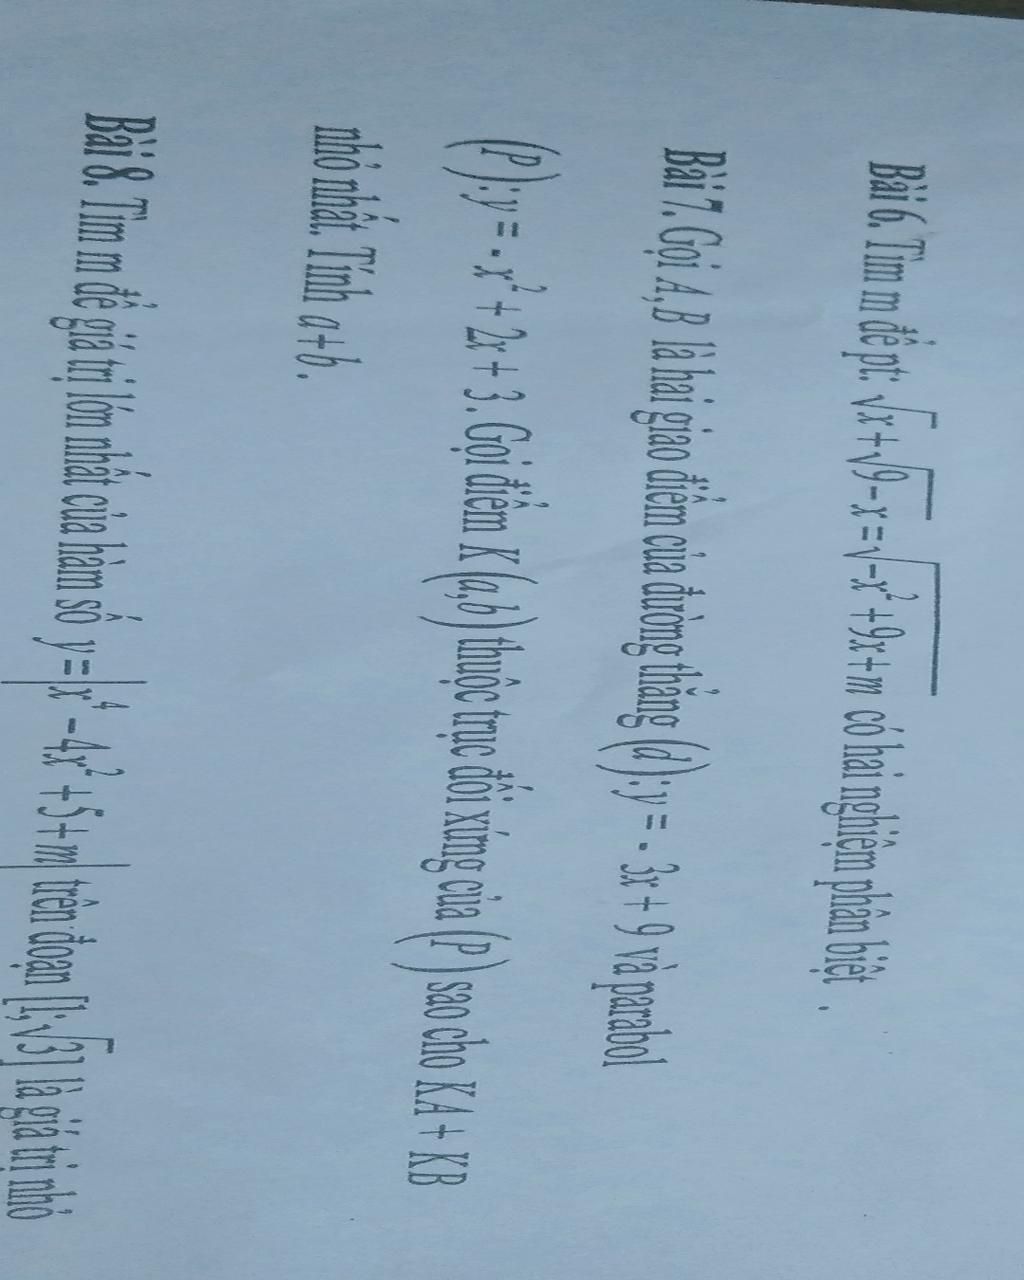 Bài 6. Tìm m để pt: √x + √(9 - x) = √(-x² + 9x + m) có hai nghiệm phân biệt .
Bài 7. Gọi A,B là hai giao điểm của đường thẳng (d):y = - 3x + 9 và parabol
(P):y = - x² + 2x + 3. Gọi điểm K(a,b) thuộc trục đối xứng của (P) sao cho KA + KB
nhỏ nhất. Tính a+b.
Bài 8. Tìm m để giá trị lớn nhất của hàm số y = |x⁴ - 4x² + 5 + m| trên đoạn [1;√3] là giá trị nhỏ